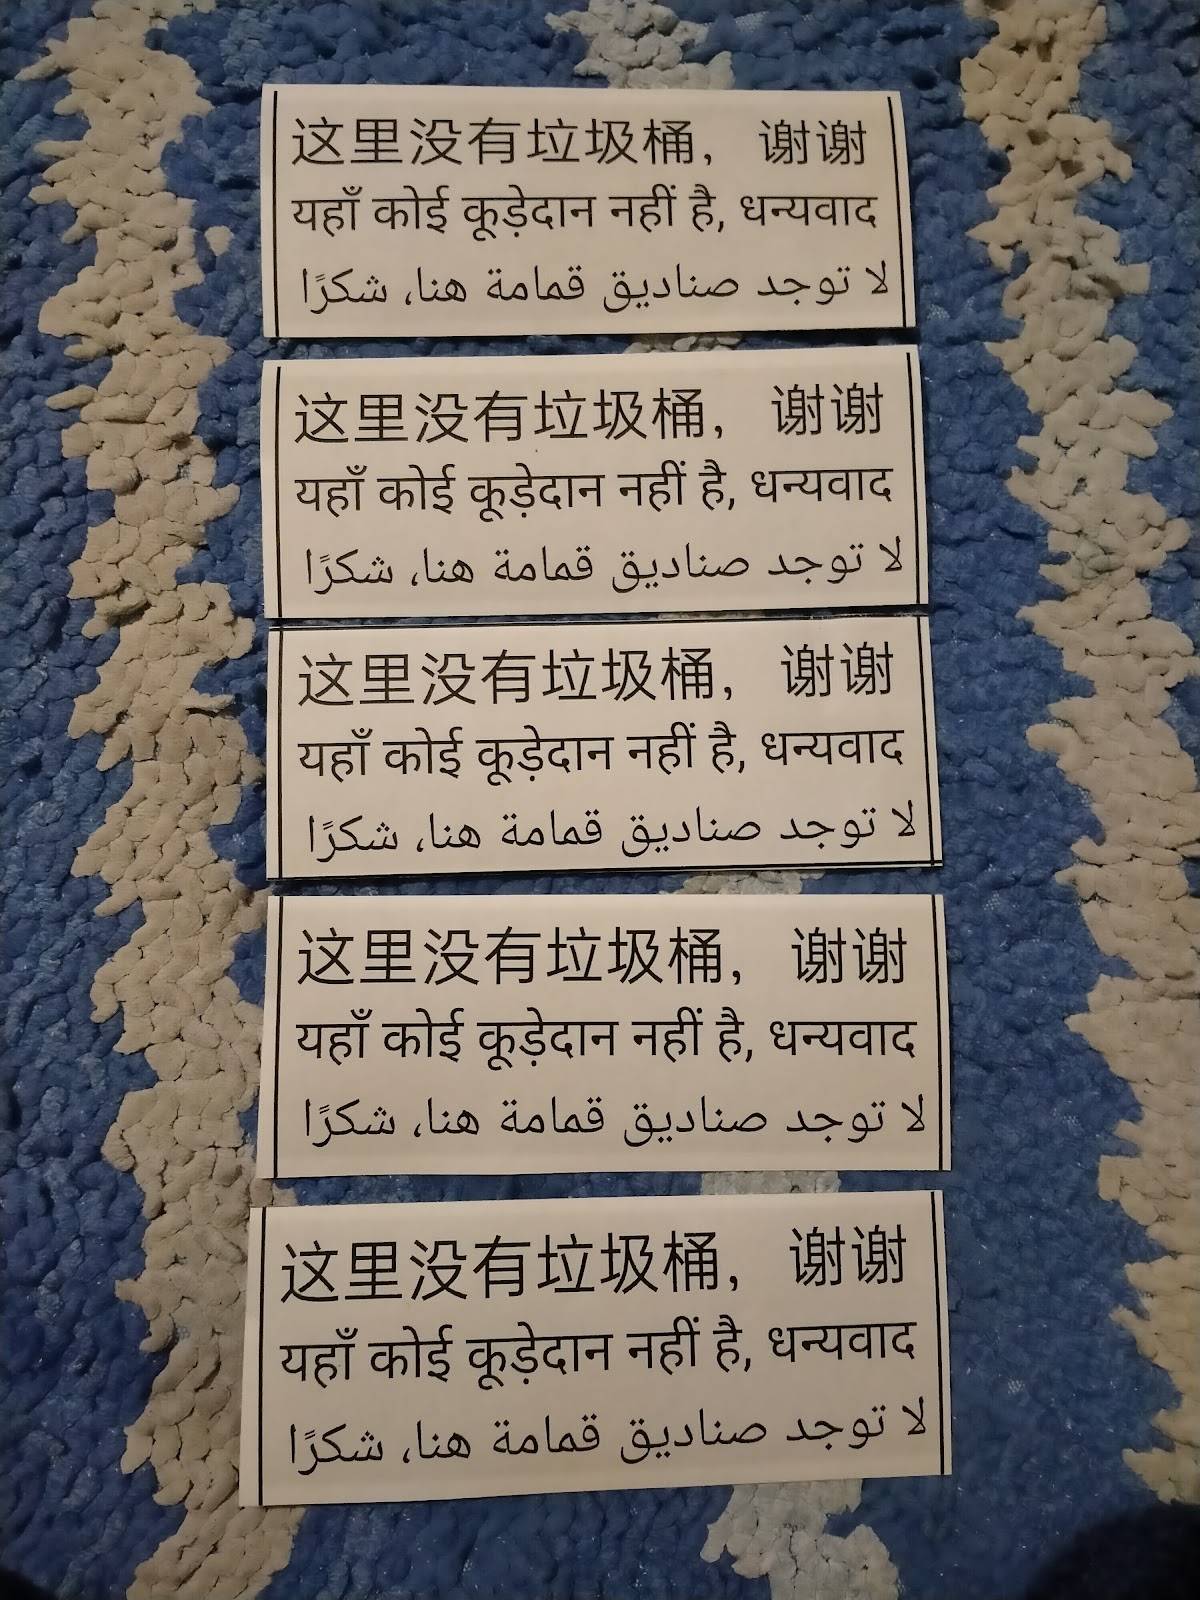 这里没有垃圾桶，谢谢
यहाँ कोई कूड़ेदान नहीं है, धन्यवाद
لا توجد صناديق قمامة هنا، شكرًا
这里没有垃圾桶，谢谢
यहाँ कोई कूड़ेदान नहीं है, धन्यवाद
لا توجد صناديق قمامة هنا، شكرًا
这里没有垃圾桶，谢谢
यहाँ कोई कूड़ेदान नहीं है, धन्यवाद
لا توجد صناديق قمامة هنا، شكرًا
这里没有垃圾桶，谢谢
यहाँ कोई कूड़ेदान नहीं है, धन्यवाद
لا توجد صناديق قمامة هنا، شكرًا
这里没有垃圾桶，谢谢
यहाँ कोई कूड़ेदान नहीं है, धन्यवाद
لا توجد صناديق قمامة هنا، شكرًا